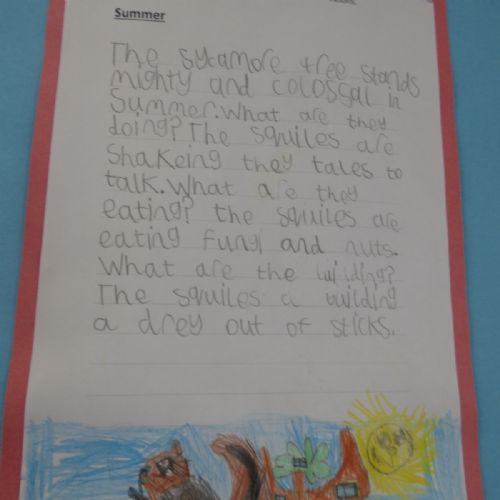 Summer
The sycamore tree stands
mighty and colossal in
Summer. What are they
doing? The squiles are
shakeing they tales to
talk. What are they
eating? the squiles are
eating fungi and nuts.
What are the building?
The squiles a building
a drey out of sticks.